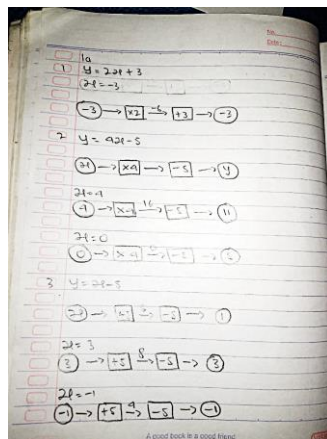 No.
Date:
1a
1 y = 2x + 3
x = -3
-3 → ×2 -6→ +3 → -3
2 y = 4x - 5
x → ×4 → -5 → y
x = 4
4 → ×4 16→ -5 → 11
x = 0
0 → ×4 0→ -5 → 5
3 y = x - 5
x → → -5 → 1
x = 3
3 → +5 8→ -5 → 3
x = -1
-1 → +5 4→ -5 → -1
A good book is a good friend